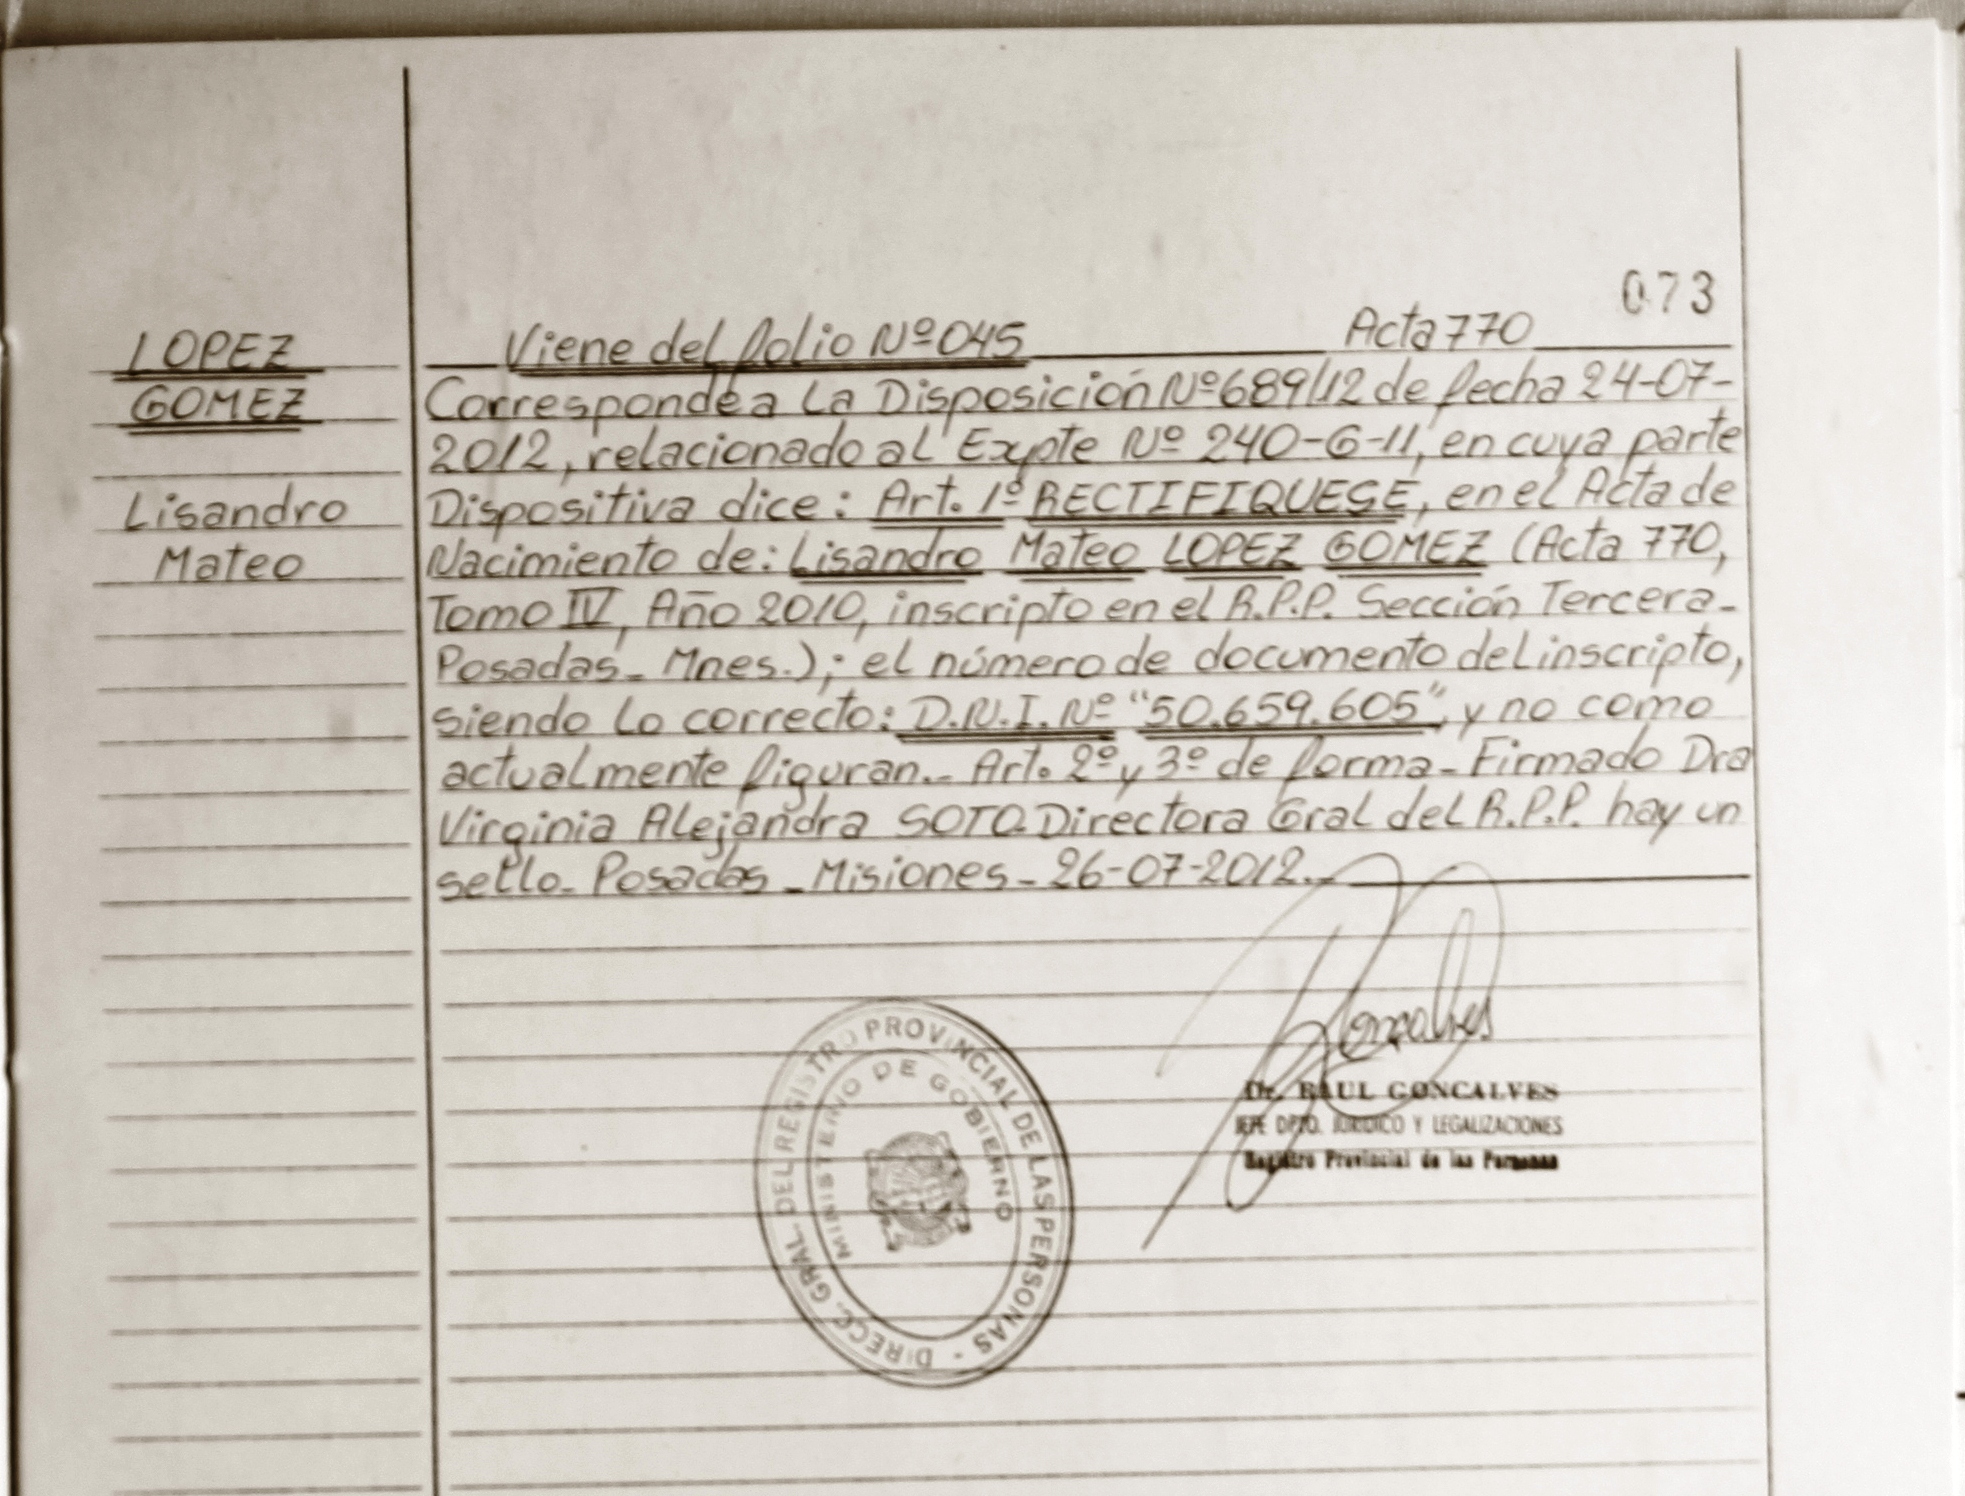 073
LOPEZ
GOMEZ
Lisandro
Mateo
Viene del folio Nº 045 Acta 770
Corresponde a La Disposición Nº 689/12 de fecha 24-07-
2012, relacionado al Expte Nº 240-G-11, en cuya parte
Dispositiva dice: Art. 1º RECTIFIQUESE, en el Acta de
Nacimiento de: Lisandro Mateo LOPEZ GOMEZ (Acta 770,
Tomo IV, Año 2010, inscripto en el R.P.P. Sección Tercera-
Posadas_ Mnes.); el número de documento del inscripto,
siendo lo correcto: D.N.I. Nº "50.659.605", y no como
actualmente figuran._ Art. 2º y 3º de forma_ Firmado Dra
Virginia Alejandra SOTO. Directora Gral del R.P.P. hay un
sello_ Posadas _ Misiones_ 26-07-2012._
Goncalves
Dr. RAUL GONCALVES
JEFE DPTO. JURIDICO Y LEGALIZACIONES
Registro Provincial de las Personas
DIRECC. GRAL. DEL REGISTRO PROVINCIAL DE LAS PERSONAS -
MINISTERIO DE GOBIERNO